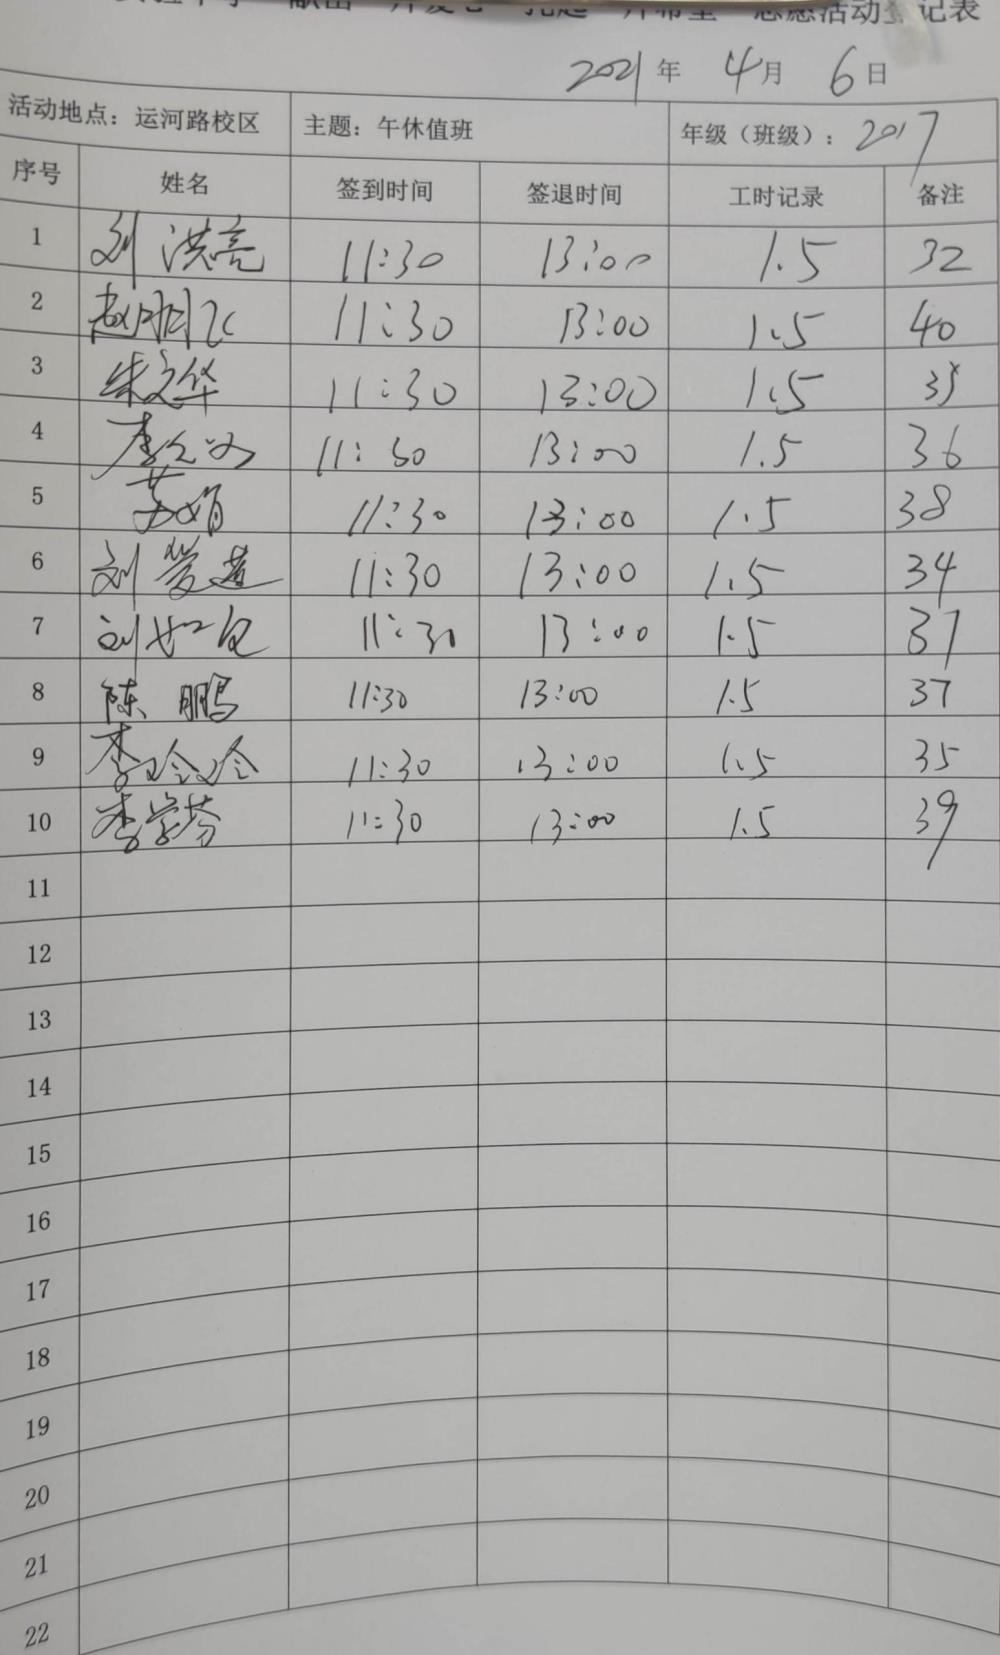 活动登记表
2021年 4月 6日
活动地点：运河路校区 主题：午休值班 年级（班级）：2017
序号 姓名 签到时间 签退时间 工时记录 备注
1 刘洪亮 11:30 13:00 1.5 32
2 赵 11:30 13:00 1.5 40
3 朱文华 11:30 13:00 1.5
4 李 11:30 13:00 1.5 36
5 苏娟 11:30 13:00 1.5 38
6 刘莹莲 11:30 13:00 1.5 34
7 刘如 11:30 13:00 1.5 37
8 陈鹏 11:30 13:00 1.5 37
9 李玲玲 11:30 13:00 1.5 35
10 李学芬 11:30 13:00 1.5 39
11
12
13
14
15
16
17
18
19
20
21
22